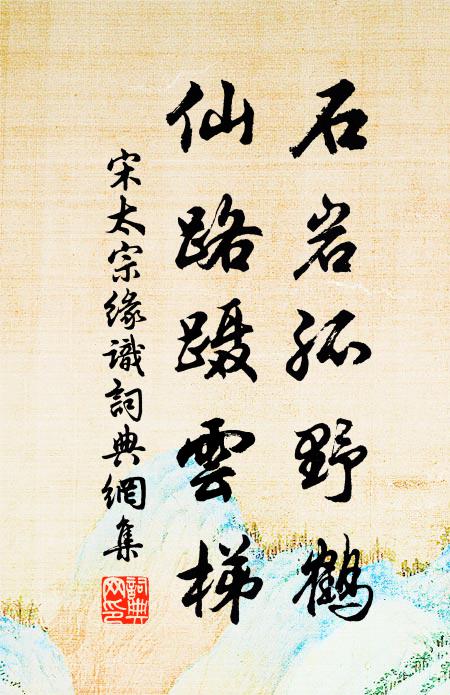 石岩孤野鹤
仙路蹑雲梯
宋太宗缘識詞典網集
詞典